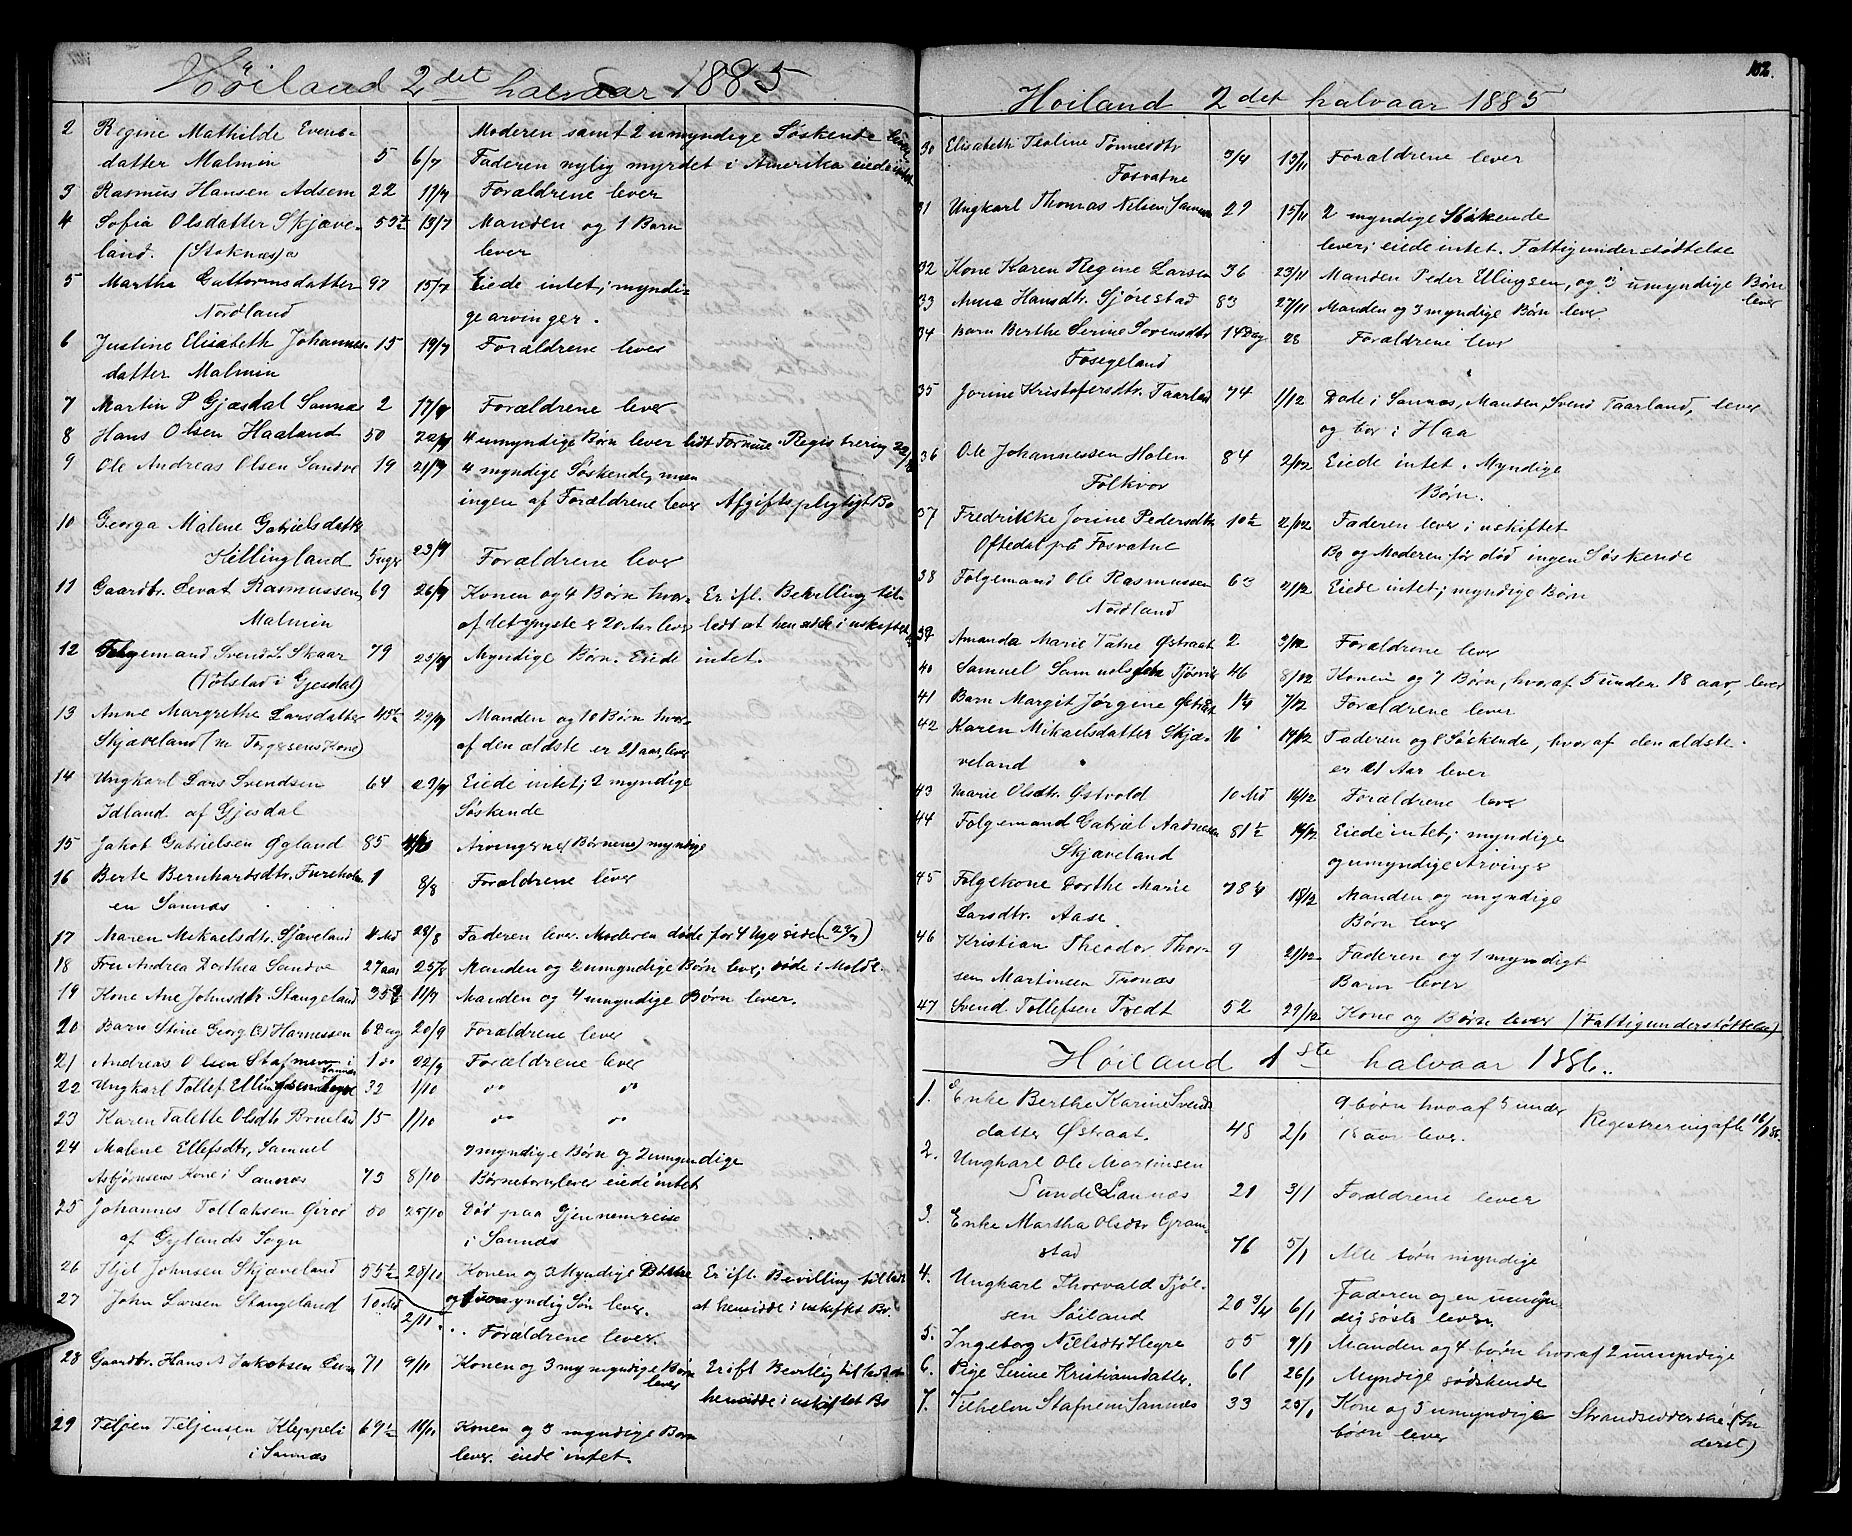 Høiland 2det halvaar 1885
2 Regine Mathilde Evens- Moderen samt 2 umyndige Søskende lever
datter Malmin 5 6/7 Faderen nylig myrdet i Amerika eiede intet
3 Rasmus Hansen Adsem 22 11/7 Forældrene lever
4 Sofia Olsdatter Skjæve- 55½ 13/7 Manden og 1 Barn
land. (Stoknæs) lever
5 Martha Guttormsdatter 97 15/7 Eiede intet; myndi-
Nordland ge arvinger.
6 Justine Elisabeth Johannes- 15 19/7 Forældrene lever
datter Malmin
7 Martin P Gjæsdal Sannæs 2 17/7 Forældrene lever
8 Hans Olsen Haaland 50 4 umyndige Børn lever lidt Formue. Registrering
9 Ole Andreas Olsen Sandve 19 21/7 4 myndige Søskende, men
ingen af Forældrene lever Afgiftspligtigt Bo
10 Georga Malene Gabrielsdatter
Killingland 5 uger 23/7 Forældrene lever
11 Gaardbr. Levat Rasmussen 69 26/7 Konen og 4 Børn hvor- Er ifl. Bevilling til-
Malmin af det yngste er 20 Aar lever ladt at hensidde i uskiftet
12 Følgemand Svend L. Skaar 79 25/7 Myndige Børn. Eiede intet.
(Tølstad i Gjesdal)
13 Anne Margrethe Larsdatter 45½ 29/7 Manden og 10 Børn hvor-
Skjæveland (m Torgersens Kone) af den ældste er 21 aar, lever
14 Ungkarl Lars Svendsen 64 23/7 Eiede intet; 2 myndige
Idland af Gjesdal Søskende
15 Jakob Gabrielsen Øgland 85 Arvingerne (Børnene) myndige
16 Berte Bernhardsdtr. Fureholm- 1 8/8 Forældrene lever
en Sannæs
17 Maren Mikaelsdtr. Sjæveland 4 Md 28/8 Faderen lever. Moderen døde for 4 Uger siden (29/7)
18 Fru Andrea Dorthea Sandve 27 aar 25/8 Manden og 2 umyndige Børn lever; døde i Molde.
19 Kone Ane Johnsdtr Stangeland 11/7 Manden og 4 umyndige Børn lever.
20 Barn Stine Georg Hansen 6 Dag 20/9 Forældrene lever
21 Andreas Olsen Stafnem i 1 22/9 Forældrene lever
Sannæs
22 Ungkarl Tollef Ellingsen 32 1/10 " "
23 Karen Talette Olsdtr Brueland 15 1/10 " "
24 Malene Ellefsdtr, Samuel 7 myndige Børn og 2 umyndige
Asbjørnsens Kone i Sannæs 73 8/10 Børnebørn lever eiede intet
25 Johannes Tollaksen Giroi 50 25/10 Død paa Gjennemreise
af Gylands Sogn i Sannæs
26 Kjel Johnsen Skjæveland 55½ 28/10 Konen og 3 Myndige Døttre Er ifl. Bevilling tilladt
27 John Larsen Stangeland 10 Md og 1 umyndig Søn lever. at hensidde i uskiftet Bo.
2/11 .. Forældrene lever.
28 Gaardbr. Hans A Jakobsen Lura 71 9/11 Konen og 3 myndige Børn Er ifl Bevillig tilladt at
lever hensidde i uskiftet Bo
29 Teljen Teljensen Kleppeli 69½ 10/11 Konen og 3 myndige Børn
i Sannæs lever. eiede intet.
102.
Høiland 2det halvaar 1885
30 Elisabeth Teoline Tønnesdtr 3/4 13/11 Forældrene lever
Fosvatne
31 Ungkarl Thomas Nilsen Sannæs 29 15/11 2 myndige Søskende
lever; eiede intet. Fattigunderstøttelse
32 Kone Karen Regine Larsen 36 23/11 Manden Peder Ellingsen, og 3 umyndige Børn
lever
33 Anna Hansdtr. Sjørestad 83 27/11 Manden og 3 myndige Børn lever.
34 Barn Berthe Serine Sorensdtr 14 Dag 28 Forældrene lever
Fossegeland
35 Jorine Kristofersdtr. Taarland 74 1/12 Døde i Sannæs, Manden, Svend Taarland, lever
og bor i Haa
36 Ole Johannessen Holen 84 2/12 Eiede intet. Myndige
Folkvor Børn.
37 Fredrikke Jorine Pedersdtr 10½ 2/12 Faderen lever i uskiftet
Oftedal på Fosvatne Bo og Moderen før død ingen Søskende
38 Følgemand Ole Rasmussen 63 2/12 Eiede intet; myndige Børn
Nordland
39 Amanda Marie Tatne Østraat 2 3/12 Forældrene lever
40 Samuel Samuelsen Tjøsvik 46 8/12 Konen og 7 Børn, hvoraf 5 under 18 aar, lever
41 Barn Margit Jørgine Østraat 1¼ 7/12 Forældrene lever
42 Karen Mikaelsdatter Skjæ- 16 14/12 Faderen og 8 Søskende, hvoraf den ældste
veland er 21 Aar lever
43 Marie Olsdtr. Østvold 10 Md 16/12 Forældrene lever
44 Følgemand Gabriel Aadnesen 81½ 14/12 Eiede intet; myndige
Skjæveland og umyndige Arvinger
45 Følgekone Dorthe Marie 78 18/12 Manden og myndige
Larsdtr. Aase Børn lever
46 Kristian Theodor Thor- 9 21/12 Faderen og 1 myndigt
sen Martinsen Tronæs Barn lever
47 Svend Tollefsen Tredt 52 29/12 Kone og Børn lever (Fattigunderstøttelse)
Høiland 1ste halvaar 1886.
1. Enke Berthe Karine Svends 9 børn hvoraf 5 under Registrering afh.
datter Østraat. 48 2/1 18 aar lever.
2. Ungkarl Ole Martinsen
Sunde Sannæs 21 3/1 Forældrene lever
3. Enke Martha Olsdtr Gram-
stad 76 5/1 Alle børn myndige
4. Ungkarl Thorvald Tjøl- Faderen og en umyn-
sen Søiland 20 3/4 6/1 dig søster lever.
5. Ingeborg Nielsdtr Høyre 55 9/1 Manden og 4 børn hvoraf 2 umyndige
6. Pige Serine Kristiansdatter. 61 26/1 Myndige sødskende
7. Vilhelm Stafnem Sannæs 33 25/1 Kone og 5 umyndige
børn lever